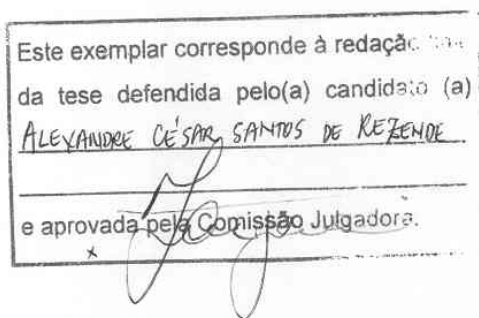 Este exemplar corresponde à redação
da tese defendida pelo(a) candidato (a)
ALEXANDRE CÉSAR SANTOS DE REZENDE
e aprovada pela Comissão Julgadora.
x